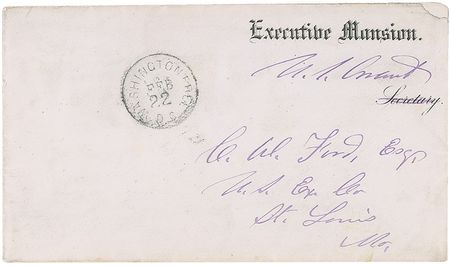 Executive Mansion.
U. S. Grant
Secretary.
WASHINGTON FREE
FEB
22
D.C.
C. W. Ford, Esq.
U.S. Ex. Co
St. Louis
Mo.